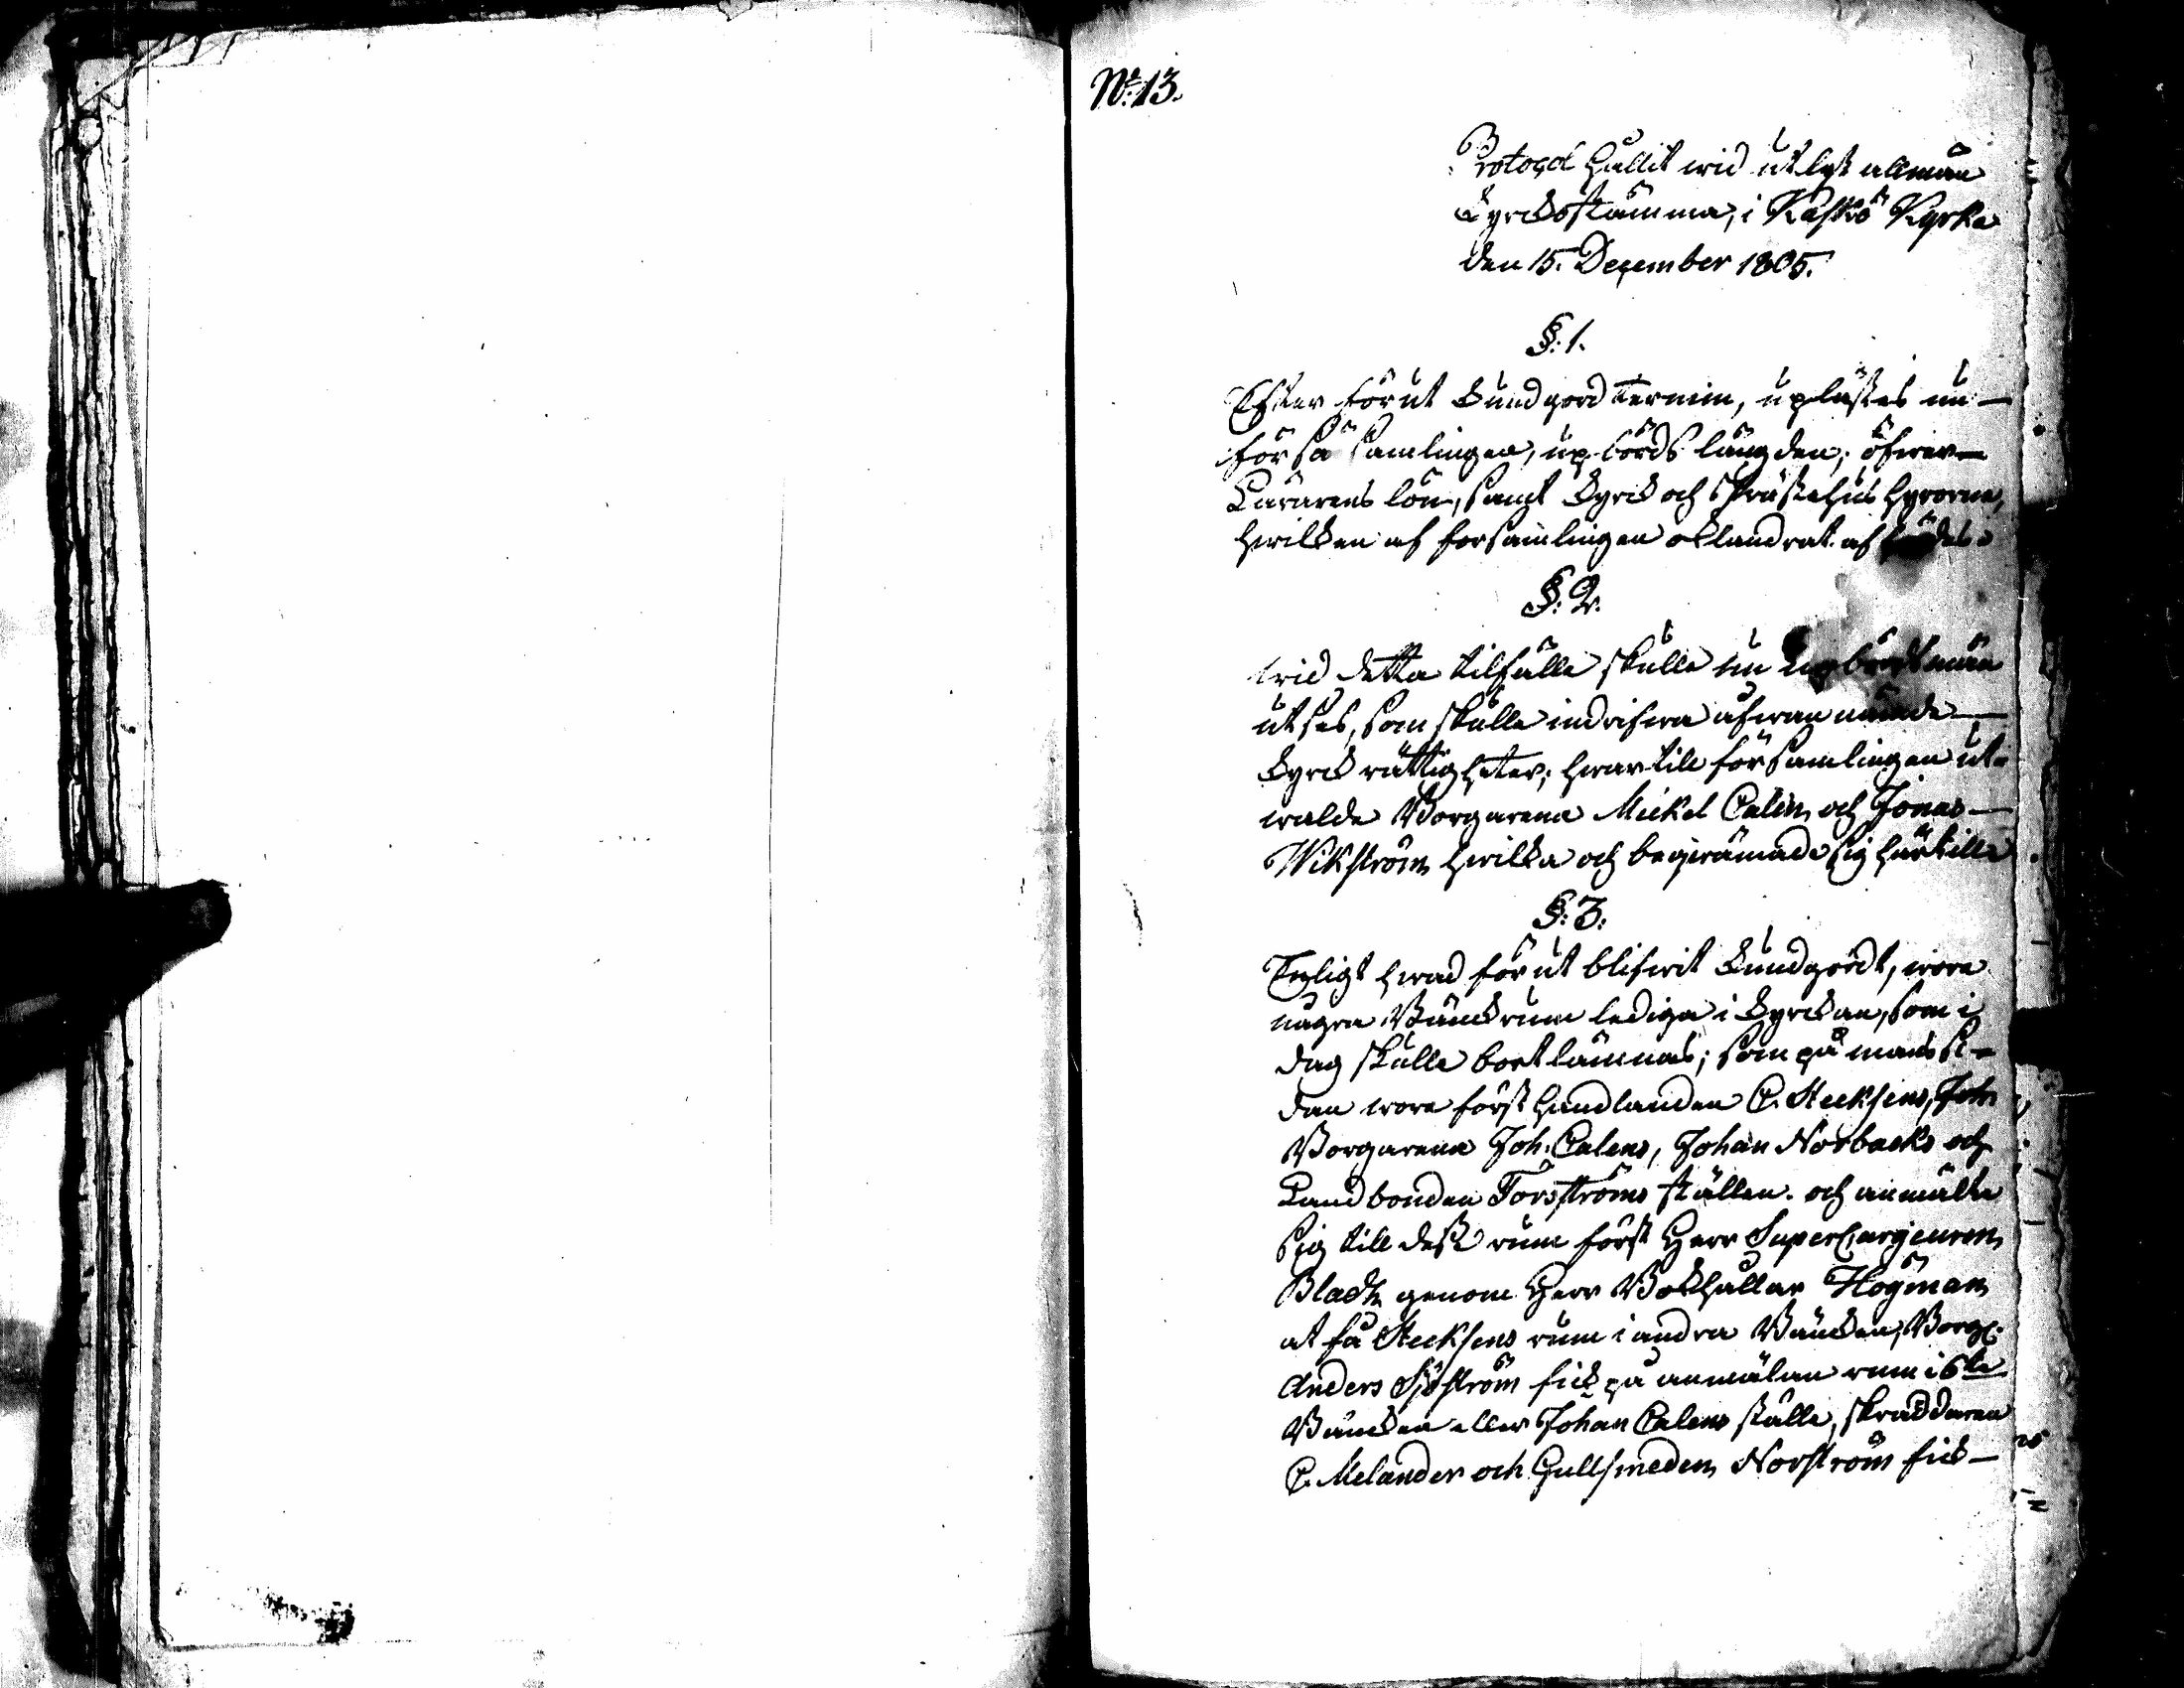 No: 13.
Protocol hållit wid utlyst allmän
Kyrckostämma, i Kaskö Kyrka
den 15. December 1805.
§: 1.
Efter förut kundgord termin, uplästes nu —
för församlingen, upbörds längden, öfwer —
Lärarens lön, samt Kyrck och Prästehus hyrorne,
hwilken af församlingen oklandrat af
§: 2.
wid detta tilfälle skulle nu upbördsmän
utses, som skulle indrifwa ofwannämde —
Kyrck rättigheter; hwartill församlingen ut-
walde Borgarena Mickel Calen och Jonas —
Wikström hwilka och beqwämade sig härtille
§: 3.
Enligt hwad förut blifwit kundgordt, wore
några Bänckrum lediga i Kyrckan, som i
dag skulle bortlämnas; som på mans si-
dan wore först handlanden C. Steeksens, Joh
Borgarena Joh. Calens, Johan Norbacks och
Landbonden Forsströms ställen. och anmälte
sig till desse rum först Herr SuperCargeuren
Bladh genom Herr Bokhållar Hogman
at få Steeksens rum i andra Bäncken, Borg:
Anders Sjöström fick på anmälan rum i 6te
Bäncken eller Johan Calens ställe, skräddaren
C. Melander och Gullsmeden Norström fick —